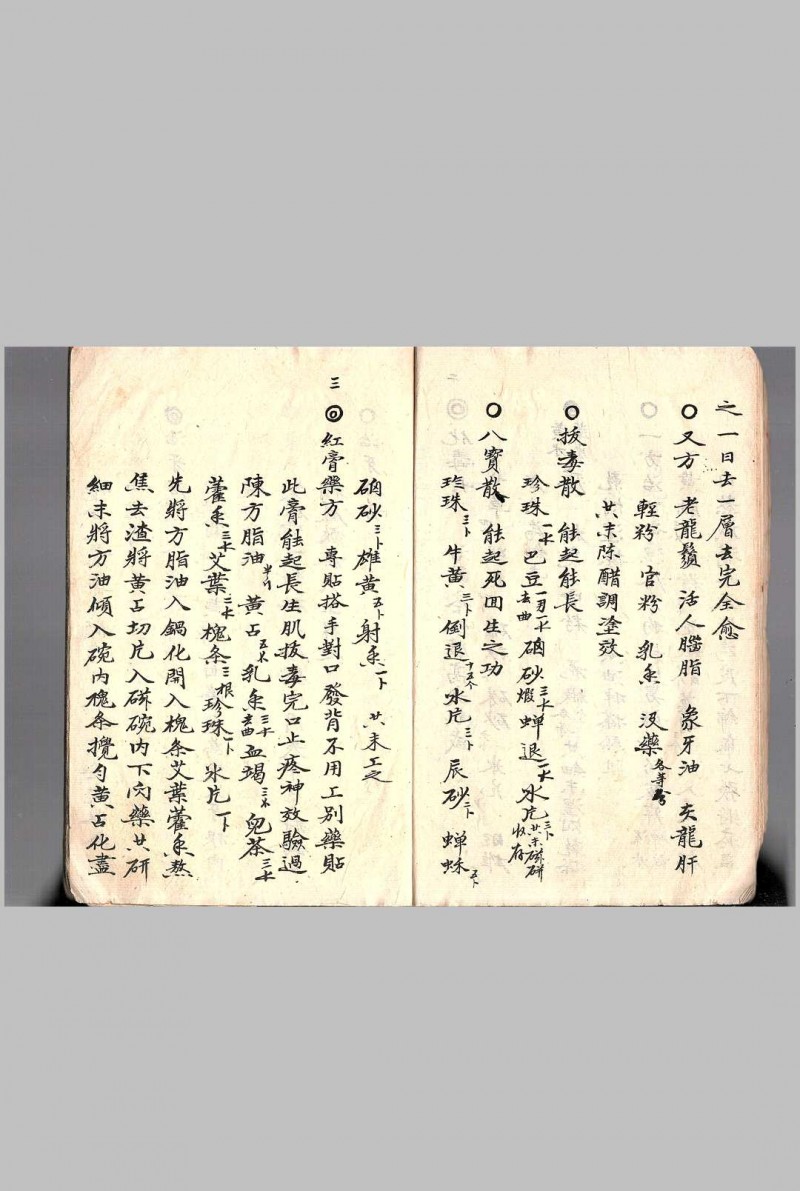 之一日去一層去完全愈
○又方 老龍鬚 活人腦脂 象牙油 灶龍肝
輕粉 官粉 乳香 沒藥各等分
共末陳醋調塗效
○拔毒散 能起能長
珍珠 巴豆去曲 硇砂煅 蟬退 冰片共末研收存
○八寶散 能起死回生之功
珍珠三卜 牛黃三卜 倒退十五个 冰片三卜 辰砂二卜 蟬蛛五卜
硇砂三卜 雄黃五卜 射香一卜 共末工之
三 ◎紅膏藥方 專貼搭手對口發背不用工別藥貼
此膏能起長生肌拔毒完口止疼神效驗過
陳方脂油半斤 黃占五 乳香去曲 血竭 兒茶
藿香 艾葉 槐条三根 珍珠一卜 冰片一卜
先將方脂油入鍋化開入槐条艾葉藿香熬
焦去渣將黃占切片入碗內下肉藥共研
細末將方油傾入碗內槐条攪勻黃占化盡